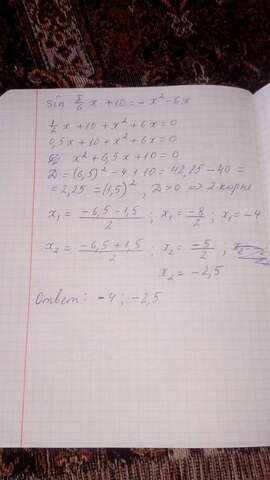 Sin π/6 x + 10 = - x² - 6x
1/2 x + 10 + x² + 6x = 0
0,5x + 10 + x² + 6x = 0
x² + 6,5x + 10 = 0
D = (6,5)² - 4 * 10 = 42,25 - 40 =
= 2,25 = (1,5)², D > 0 => 2 корня
x₁ = (-6,5 - 1,5)/2 ; x₁ = -8/2 ; x₁ = -4
x₂ = (-6,5 + 1,5)/2 ; x₂ = -5/2 ;
x₂ = -2,5
Ответ: -4 ; -2,5